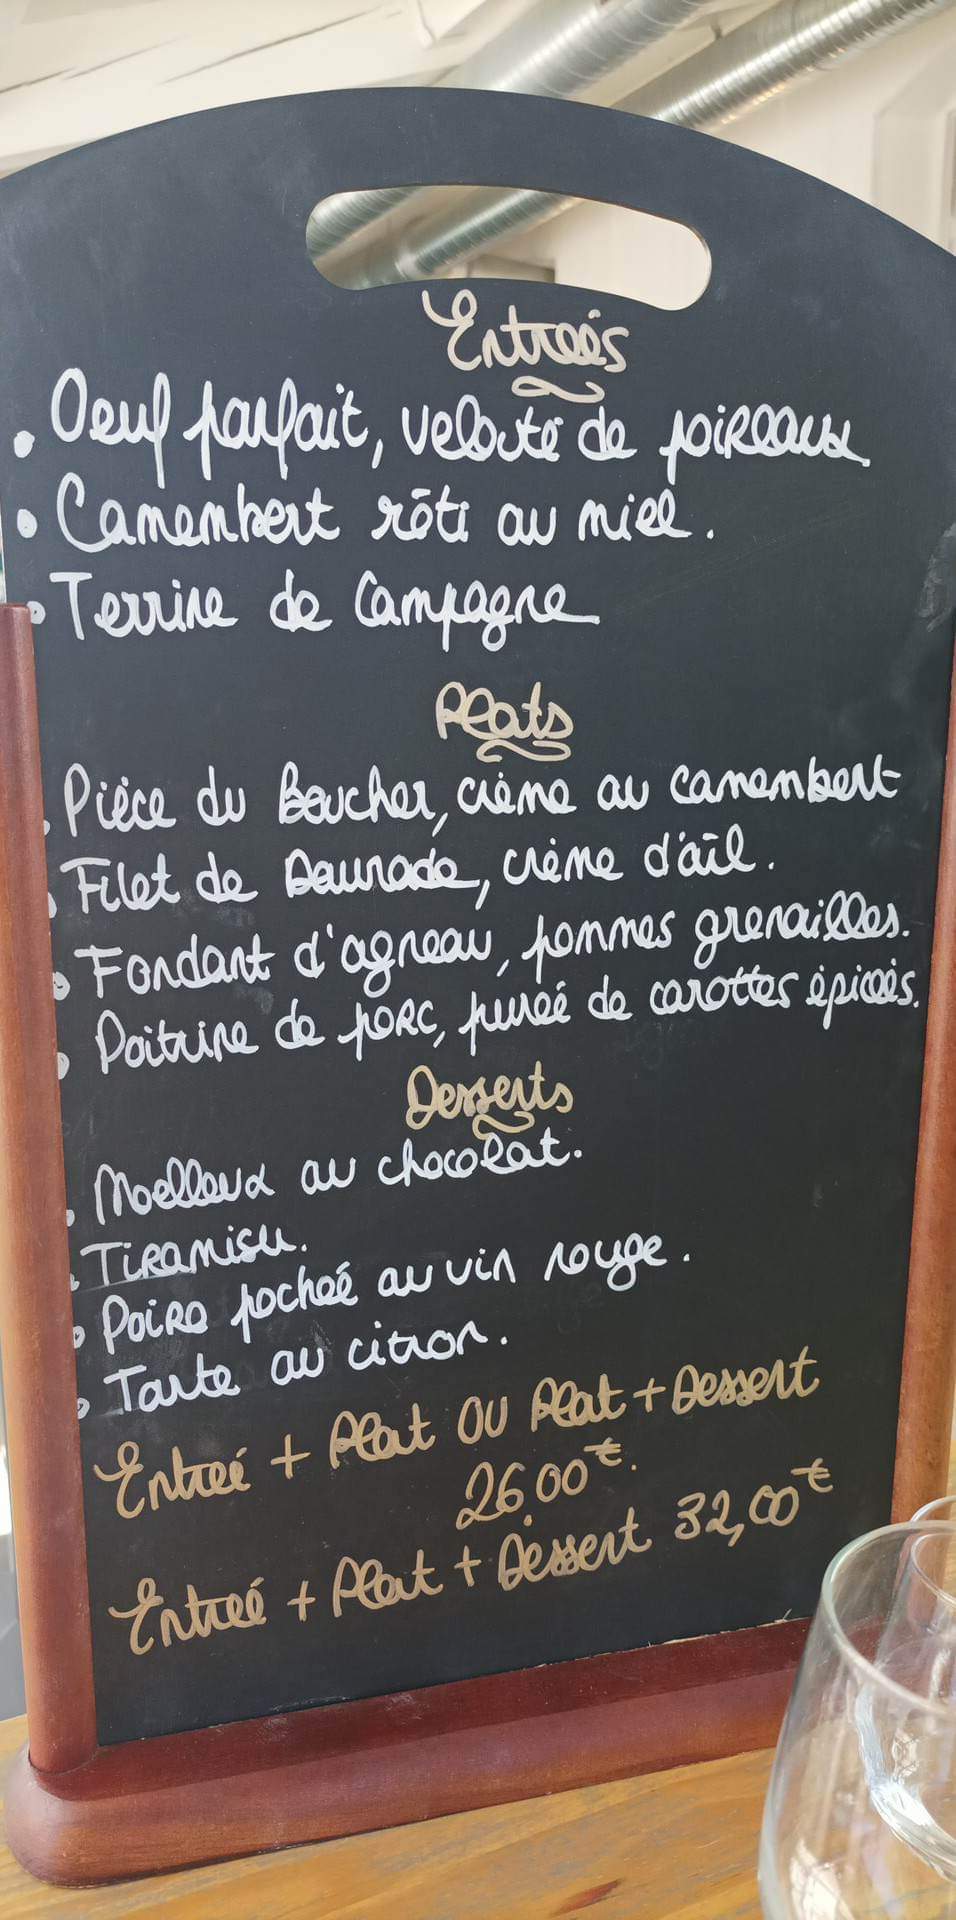 Entrées
. Oeuf parfait, velouté de poireaux
. Camembert rôti au miel.
. Terrine de Campagne
Plats
. Pièce du Boucher, crème au camembert
. Filet de Daurade, crème d'ail.
. Fondant d'agneau, pommes grenailles.
. Poitrine de porc, purée de carottes épicées.
Desserts
. Moelleux au chocolat.
. Tiramisu.
. Poire pochée au vin rouge.
. Tarte au citron.
Entrée + Plat OU Plat + Dessert
26,00€.
Entrée + Plat + Dessert 32,00€